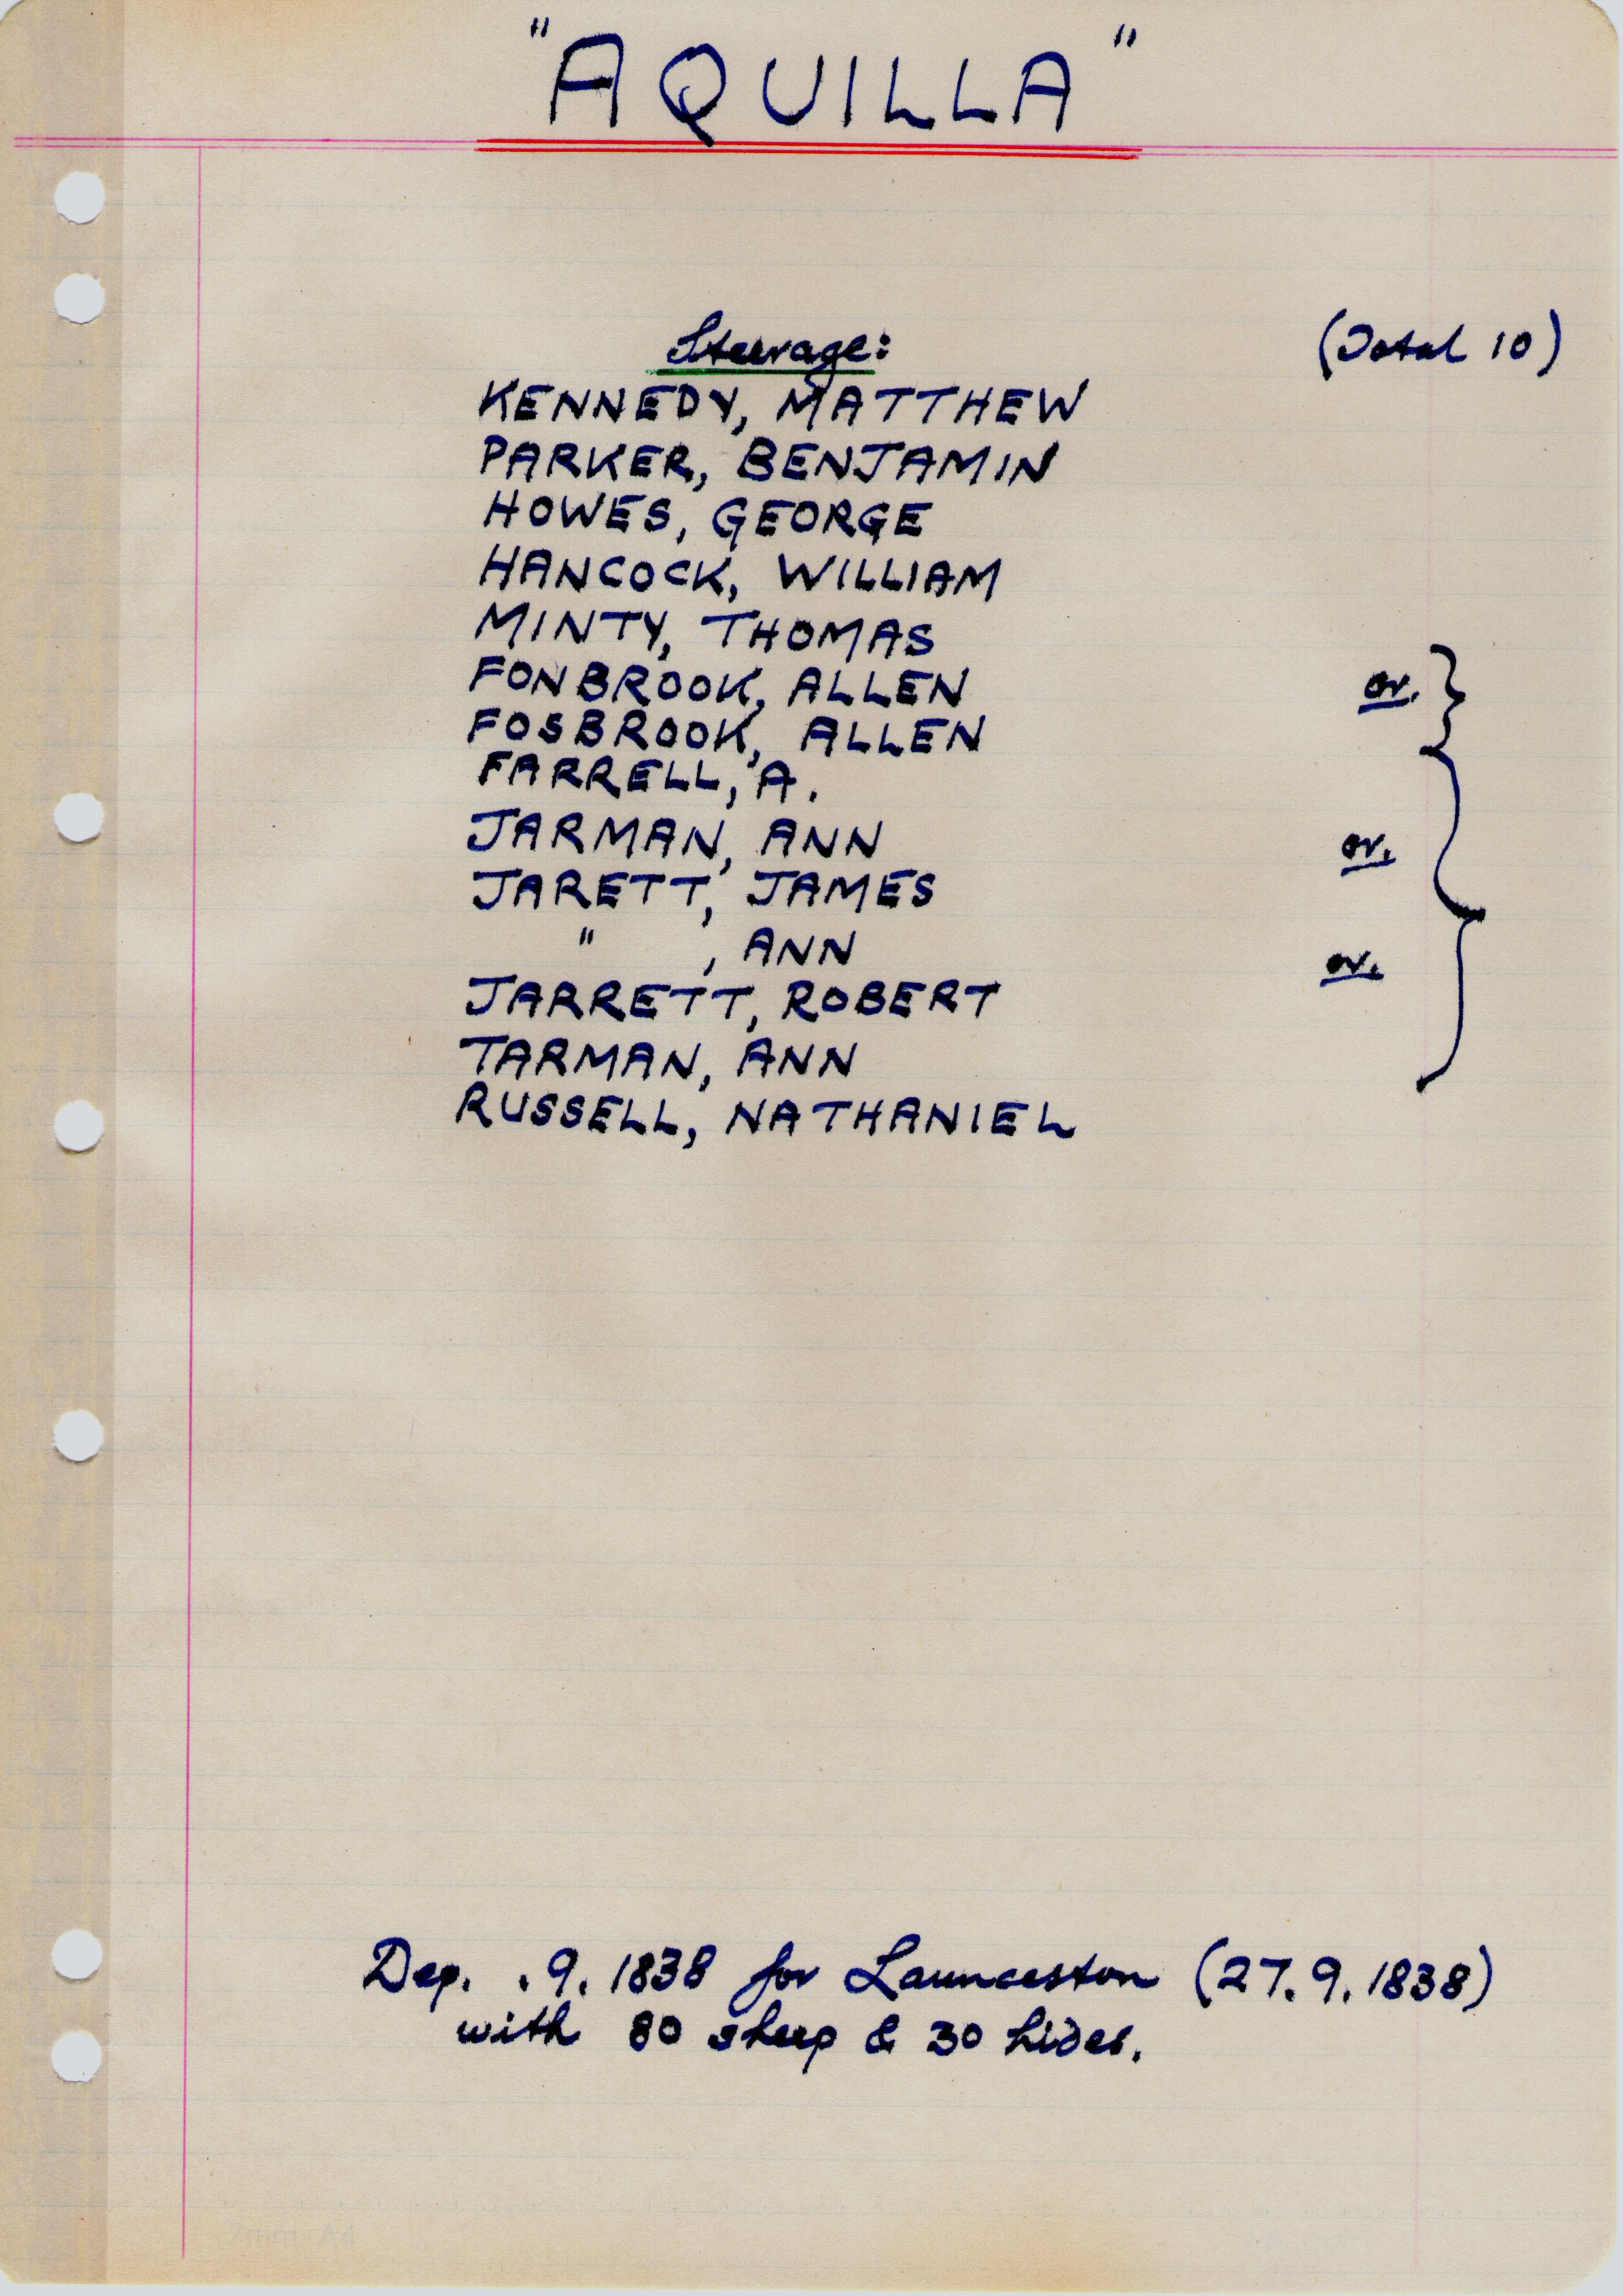 "AQUILLA"
Steerage: (Total 10)
KENNEDY, MATTHEW
PARKER, BENJAMIN
HOWES, GEORGE
HANCOCK, WILLIAM
MINTY, THOMAS
FONBROOK, ALLEN or.
FOSBROOK, ALLEN
FARRELL, A.
JARMAN, ANN or.
JARETT, JAMES
" , ANN or.
JARRETT, ROBERT
TARMAN, ANN
RUSSELL, NATHANIEL
Dep. .9.1838 for Launceston (27.9.1838)
with 80 sheep & 30 hides.
7mm A4